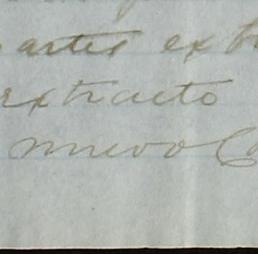 artes ex
extracto
nuevo C